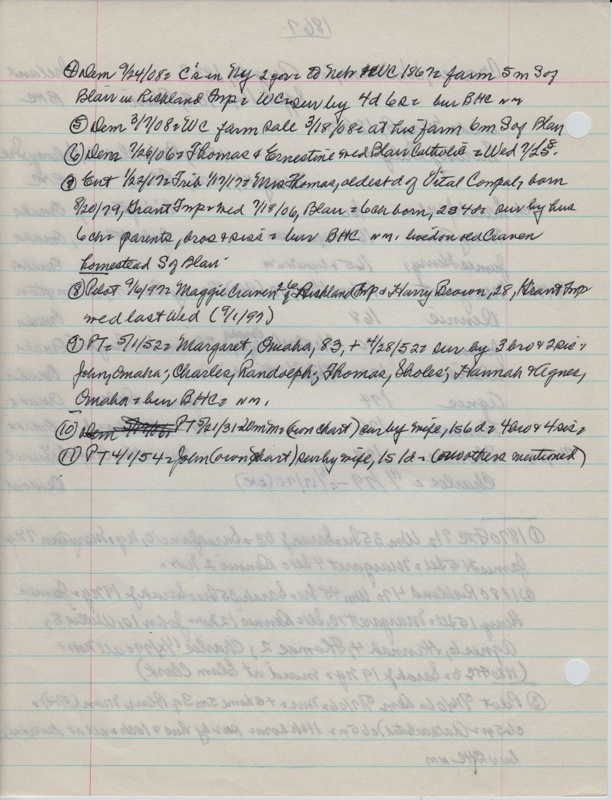 ④ Dem 9/24/08 = C's in Ky 2 yo = to Nebr WC 1867 = farm 5 m S of
Blair in Richland Tnp = WC = sur by 4 d 6 s = bur BHC nm
⑤ Dem 3/7/08 = WC farm sale 3/18/08 = at his farm 6m S of Blair
⑥ Dem 7/26/06 = Thomas & Ernestine wed Blair Catholic = Wed
Ent 1/22/17 = Trib 1/17/17 = Mrs Thomas, oldest d of Vital Compal, born
8/20/79, Grant Tnp = wed 7/18/06, Blair = 6 ch born, 2 s 4 d = sur by hus
6 ch = parents, bros & sis's = bur BHC nm. lived on old Craven
homestead S of Blair.
⑧ Pilot 9/6/97 = Maggie Craven of Richland Tnp & Harry Brown, 28, Grant Tnp
wed last Wed (9/1/97)
⑨ PT = 5/1/52 = Margaret, Omaha, 83, + 4/28/52 = sur by 3 bro & 2 sis =
John, Omaha; Charles, Randolph; Thomas, Sholes; Hannah & Agnes,
Omaha = bur BHC = nm.
⑩ PT 5/21/31 = (own chart) sur by wife, 1 s 6 d = 4 bro & 4 sis =
⑪ PT 4/1/54 = John (own chart) sur by wife, 1 s 1 d = (no others mentioned)